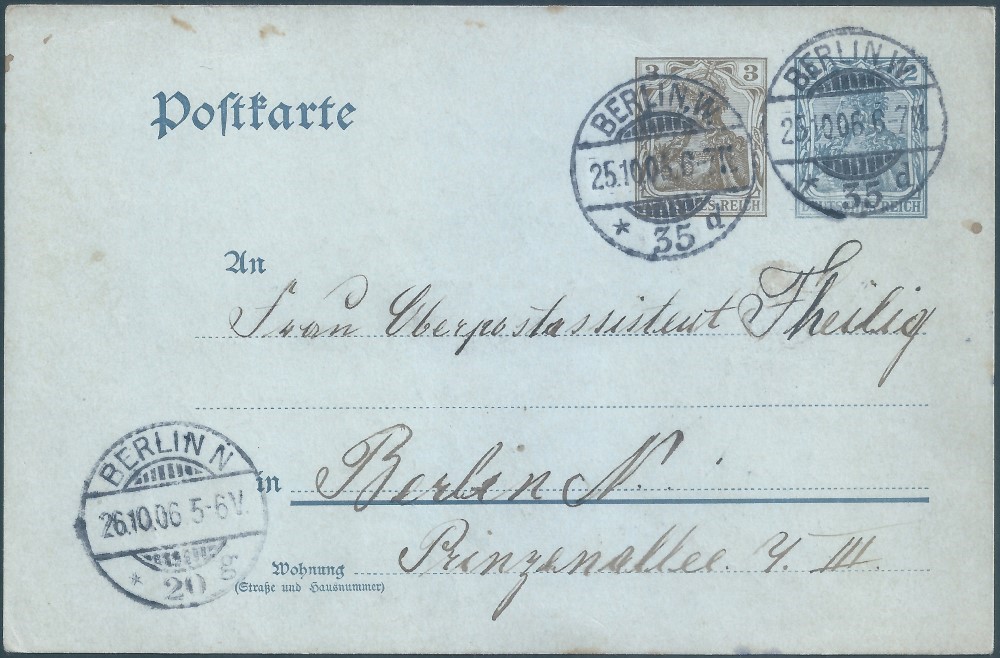 Postkarte
3 3
DEUTSCHES REICH
2
DEUTSCHES REICH
BERLIN, W.
25.10.06. 6-7N.
* 35 d
BERLIN, W.
25.10.06. 6-7N.
* 35 d
An
Frau Oberpostassistent Theilig
in Berlin N.
Wohnung Prinzenallee 4. III.
(Straße und Hausnummer)
BERLIN N
26.10.06 5-6V.
* 20